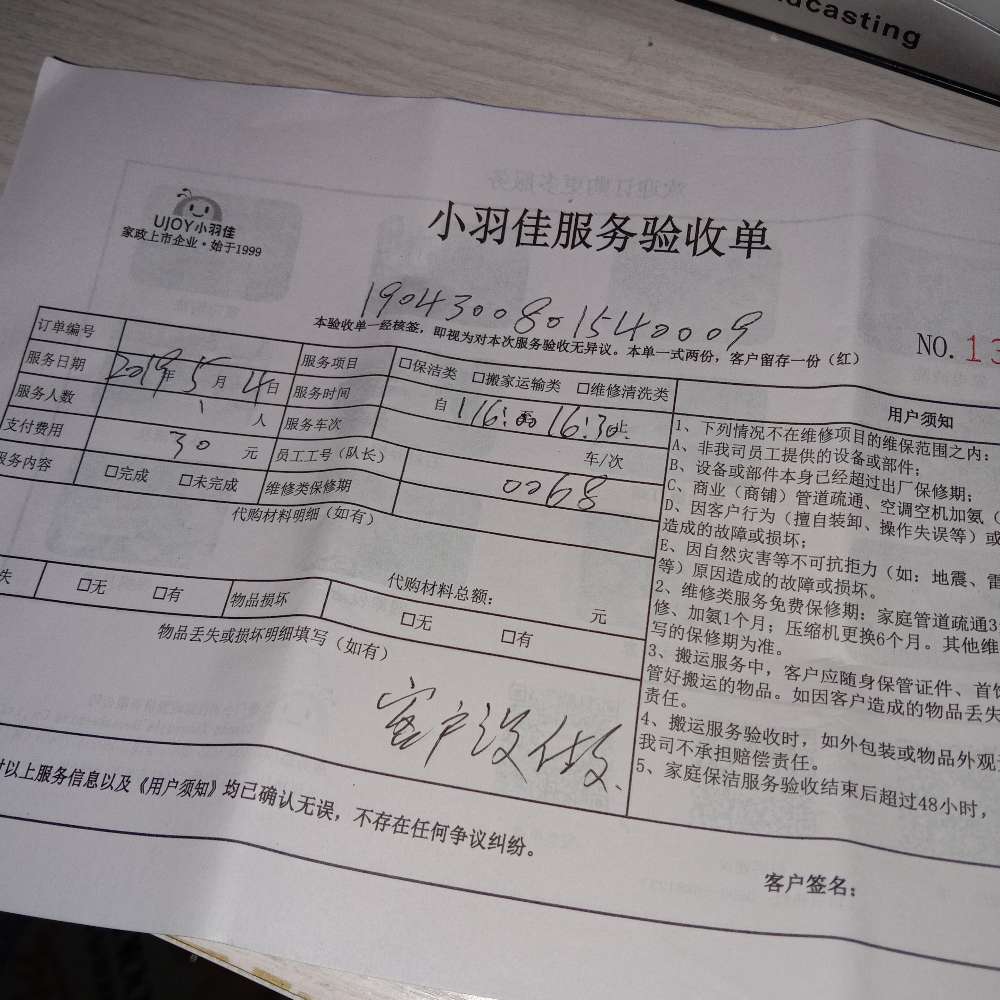 dcasting
UJOY小羽佳
家政上市企业·始于1999
小羽佳服务验收单
1904300801540009
本验收单一经核签，即视为对本次服务验收无异议。本单一式两份，客户留存一份（红）
NO.13
订单编号
服务项目 □保洁类 □搬家运输类 □维修清洗类
服务日期 2019年5月4日
服务时间 自 16:00 至 16:30止
服务人数 1 人
服务车次 车/次
支付费用 30 元
员工工号（队长） 0068
服务内容 □完成 □未完成
维修类保修期
代购材料明细（如有）
代购材料总额： 元
失 □无 □有
物品损坏 □无 □有
物品丢失或损坏明细填写（如有）
客户没做.
用户须知
1、下列情况不在维修项目的维保范围之内：
A、非我司员工提供的设备或部件；
B、设备或部件本身已经超过出厂保修期；
C、商业（商铺）管道疏通、空调空机加氨（
D、因客户行为（擅自装卸、操作失误等）或
造成的故障或损坏；
E、因自然灾害等不可抗拒力（如：地震、雷
等）原因造成的故障或损坏。
2、维修类服务免费保修期：家庭管道疏通3
修、加氨1个月；压缩机更换6个月。其他维
写的保修期为准。
3、搬运服务中，客户应随身保管证件、首饰
管好搬运的物品。如因客户造成的物品丢失
责任。
4、搬运服务验收时，如外包装或物品外观
我司不承担赔偿责任。
5、家庭保洁服务验收结束后超过48小时，
以上服务信息以及《用户须知》均已确认无误，不存在任何争议纠纷。
客户签名：